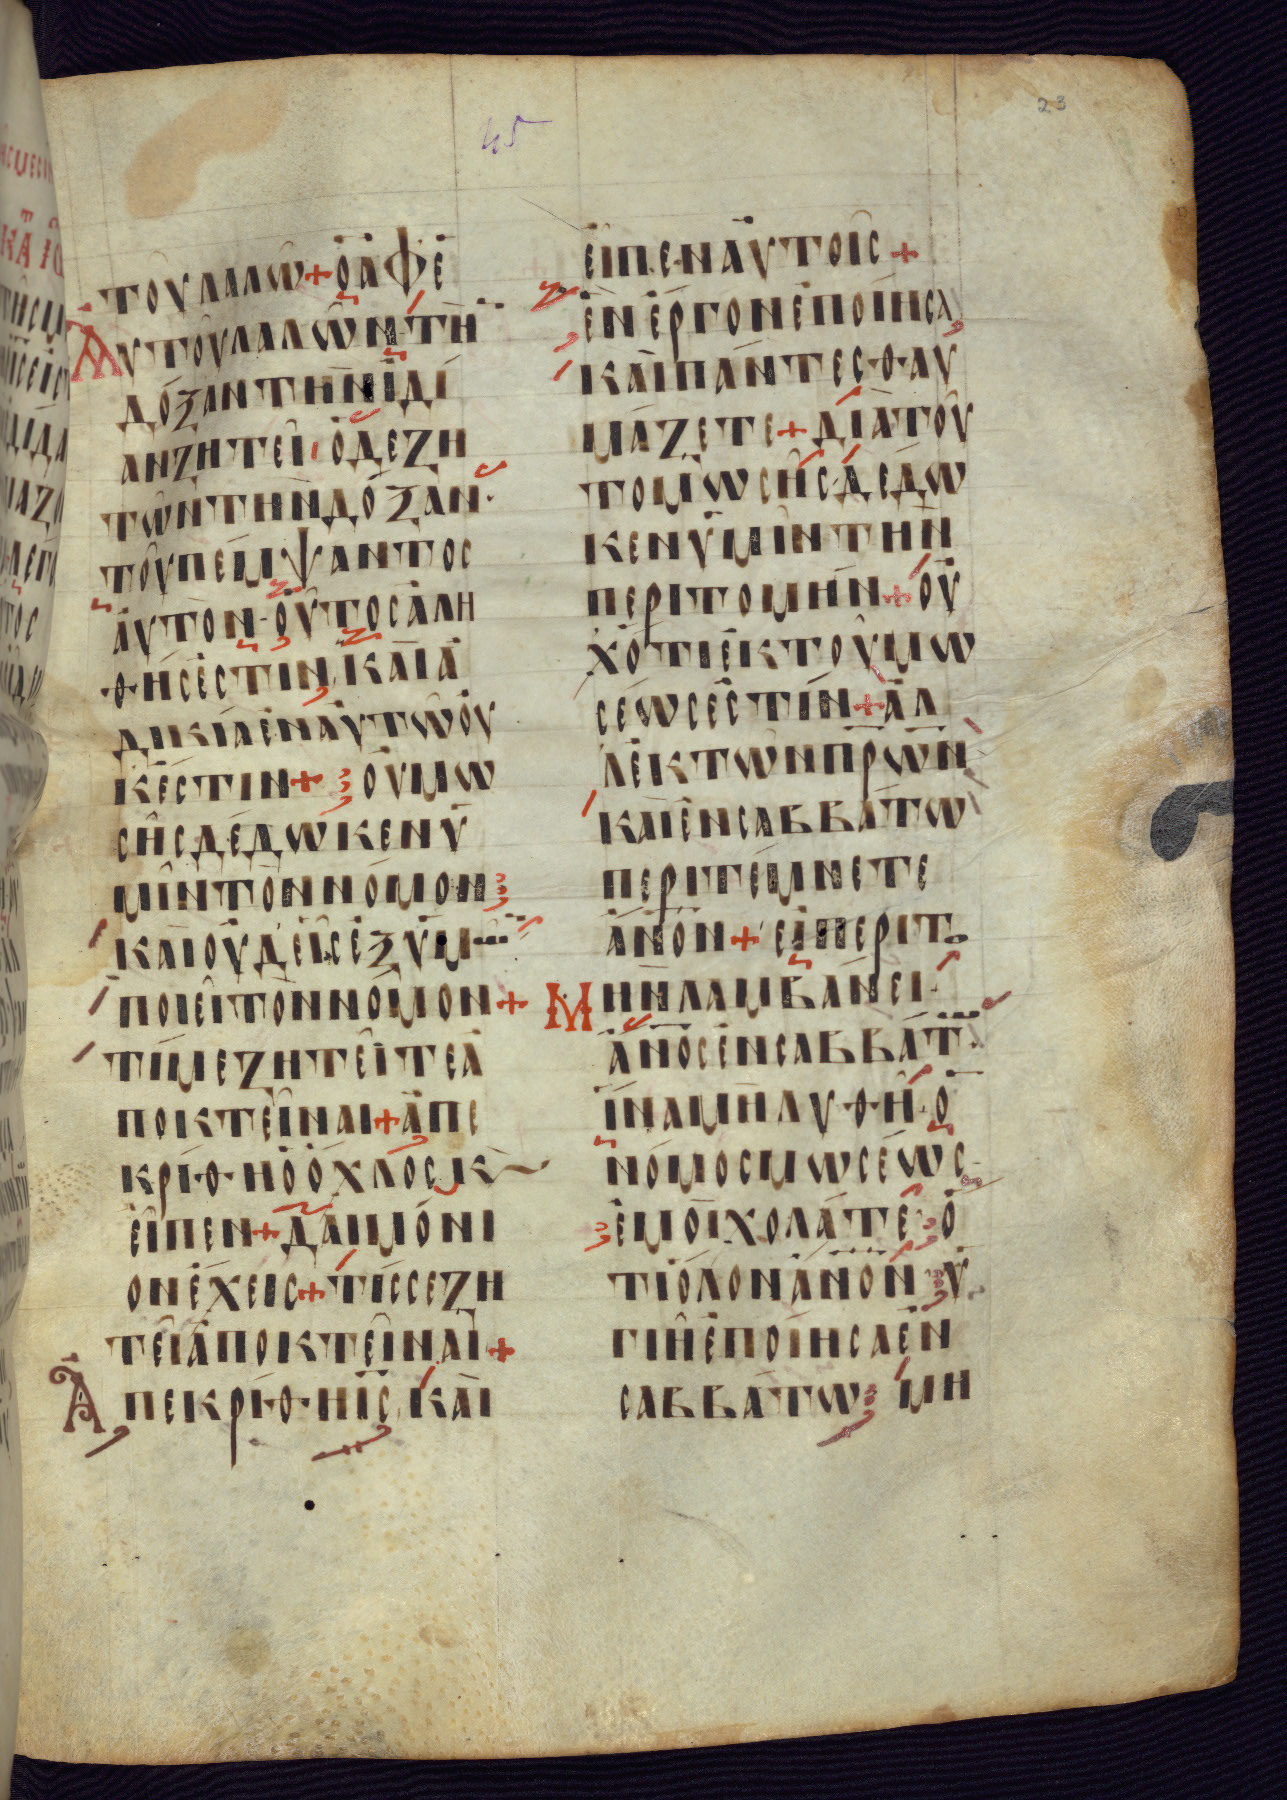 ΤΟΥ ΛΑΛΩ + Ο ΑΦ Ε
ΑΥΤΟΥ ΛΑΛΩΝ ΤΗΝ
ΔΟΞΑΝ ΤΗΝ ΙΔΙ
ΑΝ ΖΗΤΕΙ Ο ΔΕ ΖΗ
ΤΩΝ ΤΗΝ ΔΟΞΑΝ·
ΤΟΥ ΠΕΜΨΑΝΤΟΣ
ΑΥΤΟΝ· ΟΥΤΟΣ ΑΛΗ
ΘΗΣ ΕΣΤΙΝ, ΚΑΙ Α
ΔΙΚΙΑ ΕΝ ΑΥΤΩ ΟΥ
Κ ΕΣΤΙΝ + ΟΥ ΜΩ
ΣΗΣ ΔΕΔΩΚΕΝ Υ
ΜΙΝ ΤΟΝ ΝΟΜΟΝ
ΚΑΙ ΟΥΔΕΙΣ ΕΞ ΥΜ
ΠΟΙΕΙ ΤΟΝ ΝΟΜΟΝ +
ΤΙ ΜΕ ΖΗΤΕΙΤΕ Α
ΠΟΚΤΕΙΝΑΙ + ΑΠΕ
ΚΡΙΘΗ Ο ΟΧΛΟΣ Κ
ΕΙΠΕΝ + ΔΑΙΜΟΝΙ
ΟΝ ΕΧΕΙΣ + ΤΙΣ ΣΕ ΖΗ
ΤΕΙ ΑΠΟΚΤΕΙΝΑΙ +
ΑΠΕΚΡΙΘΗ ΙΣ, ΚΑΙ
ΕΙΠΕΝ ΑΥΤΟΙΣ +
ΕΝ ΕΡΓΟΝ ΕΠΟΙΗΣΑ
ΚΑΙ ΠΑΝΤΕΣ ΘΑΥ
ΜΑΖΕΤΕ + ΔΙΑ ΤΟΥ
ΤΟ ΜΩΣΗΣ ΔΕΔΩ
ΚΕΝ ΥΜΙΝ ΤΗΝ
ΠΕΡΙΤΟΜΗΝ + ΟΥ
Χ ΟΤΙ ΕΚ ΤΟΥ ΜΩ
ΣΕΩΣ ΕΣΤΙΝ + ΑΛ
Λ ΕΚ ΤΩΝ ΠΡΩΝ
ΚΑΙ ΕΝ ΣΑΒΒΑΤΩ
ΠΕΡΙΤΕΜΝΕΤΕ
ΑΝΟΝ + ΕΙ ΠΕΡΙΤΟ
ΜΗΝ ΛΑΜΒΑΝΕΙ·
ΑΝΟΣ ΕΝ ΣΑΒΒΑΤ
ΙΝΑ ΜΗ ΛΥΘΗ· Ο
ΝΟΜΟΣ ΜΩΣΕΩΣ
ΕΜΟΙ ΧΟΛΑΤΕ Ο
ΤΙ ΟΛΟΝ ΑΝΟΝ Υ
ΓΙΗ ΕΠΟΙΗΣΑ ΕΝ
ΣΑΒΒΑΤΩ ΜΗ
23